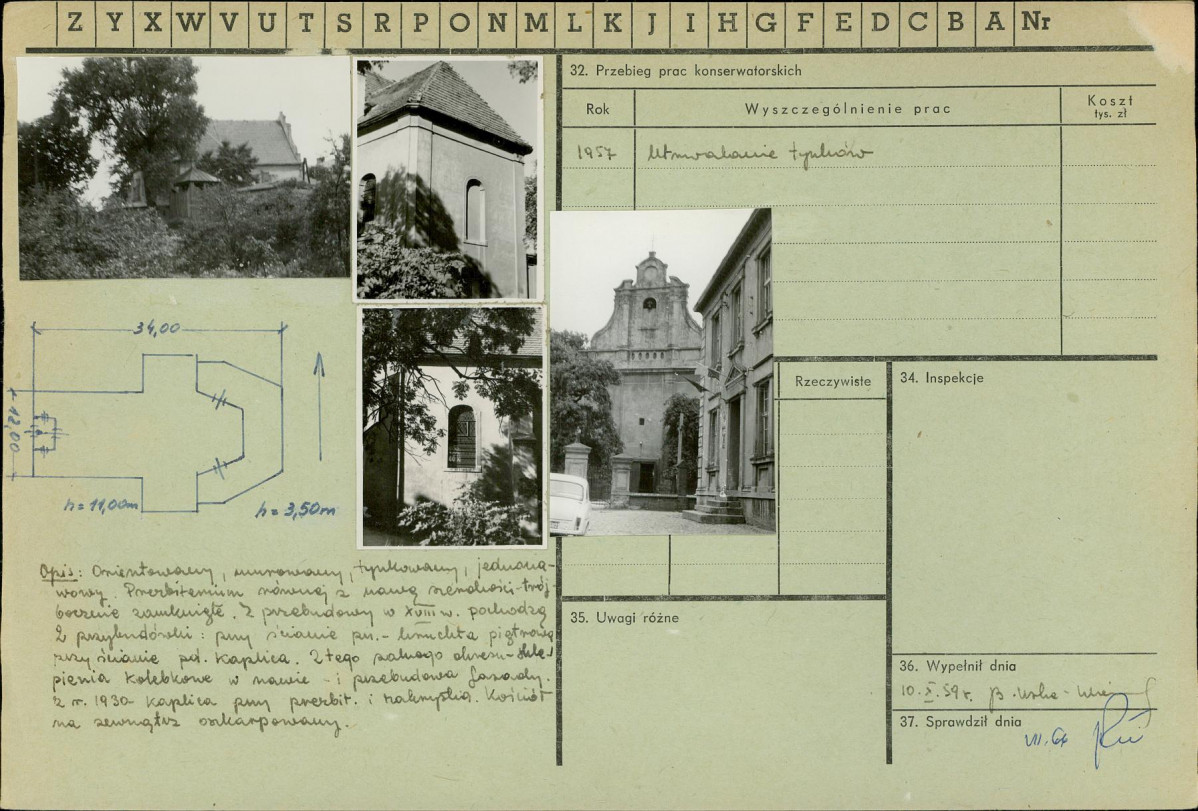 Z Y X W V U T S R P O N M L K J I H G F E D C B A Nr
32. Przebieg prac konserwatorskich
Rok Wyszczególnienie prac Koszt
tys. zł
1957 Utrwalanie tynków
34,00
12,00
h = 11,00m
h = 3,50m
Rzeczywiste
34. Inspekcje
Opis: Orientowany, murowany, tynkowany, jednona-
wowy. Prezbiterium równej z nawą szerokości - trój-
bocznie zamknięte. Z przebudowy w XVIII w. pochodzą
2 przybudówki: przy ścianie pn. - kruchta piętrowa
przy ścianie pd. kaplica. Z tego samego okresu - skle-
pienia kolebkowe w nawie - i przebudowa fasady.
Z r. 1930 - kaplica przy prezbit. i zakrystia. Kościół
na zewnątrz oskarpowany.
35. Uwagi różne
36. Wypełnił dnia
10. X. 59 r. B.
37. Sprawdził dnia